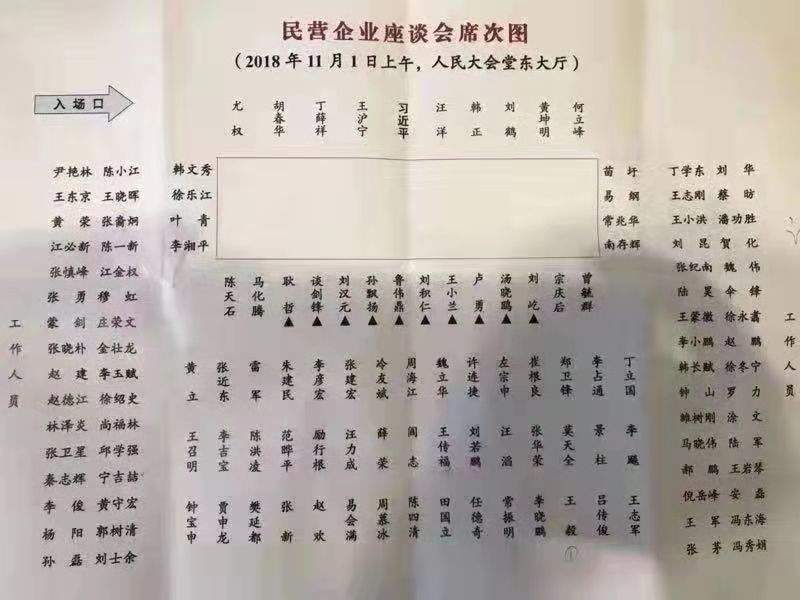 民营企业座谈会席次图
（2018年11月1日上午，人民大会堂东大厅）
入场口
尤权 胡春华 丁薛祥 王沪宁 习近平 汪洋 韩正 刘鹤 黄坤明 何立峰
尹艳林 陈小江 韩文秀 苗圩 丁学东 刘华
王东京 王晓晖 徐乐江 易纲 王志刚 蔡昉
黄荣 张裔炯 叶青 常兆华 王小洪 潘功胜
江必新 陈一新 李湘平 南存辉 刘昆 贺化
张慎峰 江金权 张纪南 魏伟
张勇 穆虹 陆昊 伞锋
蒙剑 庄荣文 王蒙徽 徐永翥
张晓朴 金壮龙 李小鹏 赵鹏
赵建 李玉赋 韩长赋 徐冬宁
赵德江 徐绍史 钟山 罗力
林泽炎 尚福林 雒树刚 涂文
张卫星 邱学强 马晓伟 陆军
秦志辉 宁吉喆 郝鹏 王岩琴
李俊 黄守宏 倪岳峰 安磊
杨阳 郭树清 王军 冯东海
孙磊 刘士余 张茅 冯秀娟
工作人员
陈天石 马化腾 耿哲▲ 谈剑锋▲ 刘汉元▲ 孙飘扬▲ 鲁伟鼎▲ 刘积仁▲ 王小兰▲ 卢勇▲ 汤晓鸥▲ 刘屹▲ 宗庆后 曾毓群
黄立 张近东 雷军 朱建民 李彦宏 张建宏 冷友斌 周海江 魏立华 许连捷 左宗申 崔根良 郑卫锋 李占通 丁立国
王召明 李吉宝 陈洪凌 范晔平 励行根 汪力成 薛荣 阎志 王传福 刘若鹏 汪滔 张华荣 莫天全 景柱 李飚
钟宝申 贾申龙 樊延都 张新 赵欢 易会满 周慕冰 陈四清 田国立 任德奇 常振明 李晓鹏 王毅 吕传俊 王志军
①
工作人员